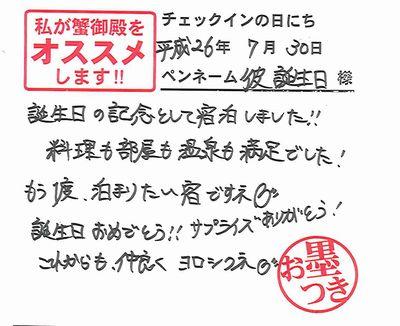 私が蟹御殿を
オススメ
します!!
チェックインの日にち
平成26年 7月 30日
ペンネーム 彼 誕生日 様
誕生日の記念として宿泊しました!!
料理も部屋も温泉も満足でした!
もう1度、泊まりたい宿ですネ
誕生日おめでとう!! サプライズありがとう!
これからも、仲良く ヨロシクネ
お墨つき